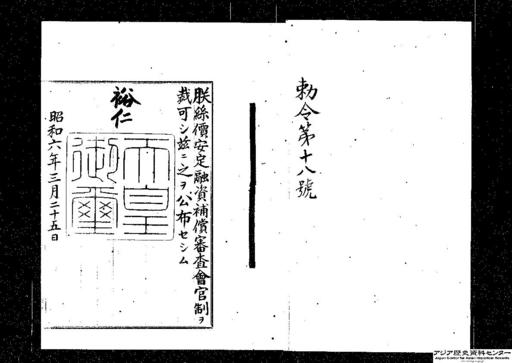 勅令第十八號
朕絲價安定融資補償審査會官制ヲ
裁可シ玆ニ之ヲ公布セシム
裕仁
天皇
御璽
昭和六年三月二十五日
アジア歴史資料センター
Japan Center for Asian Historical Records